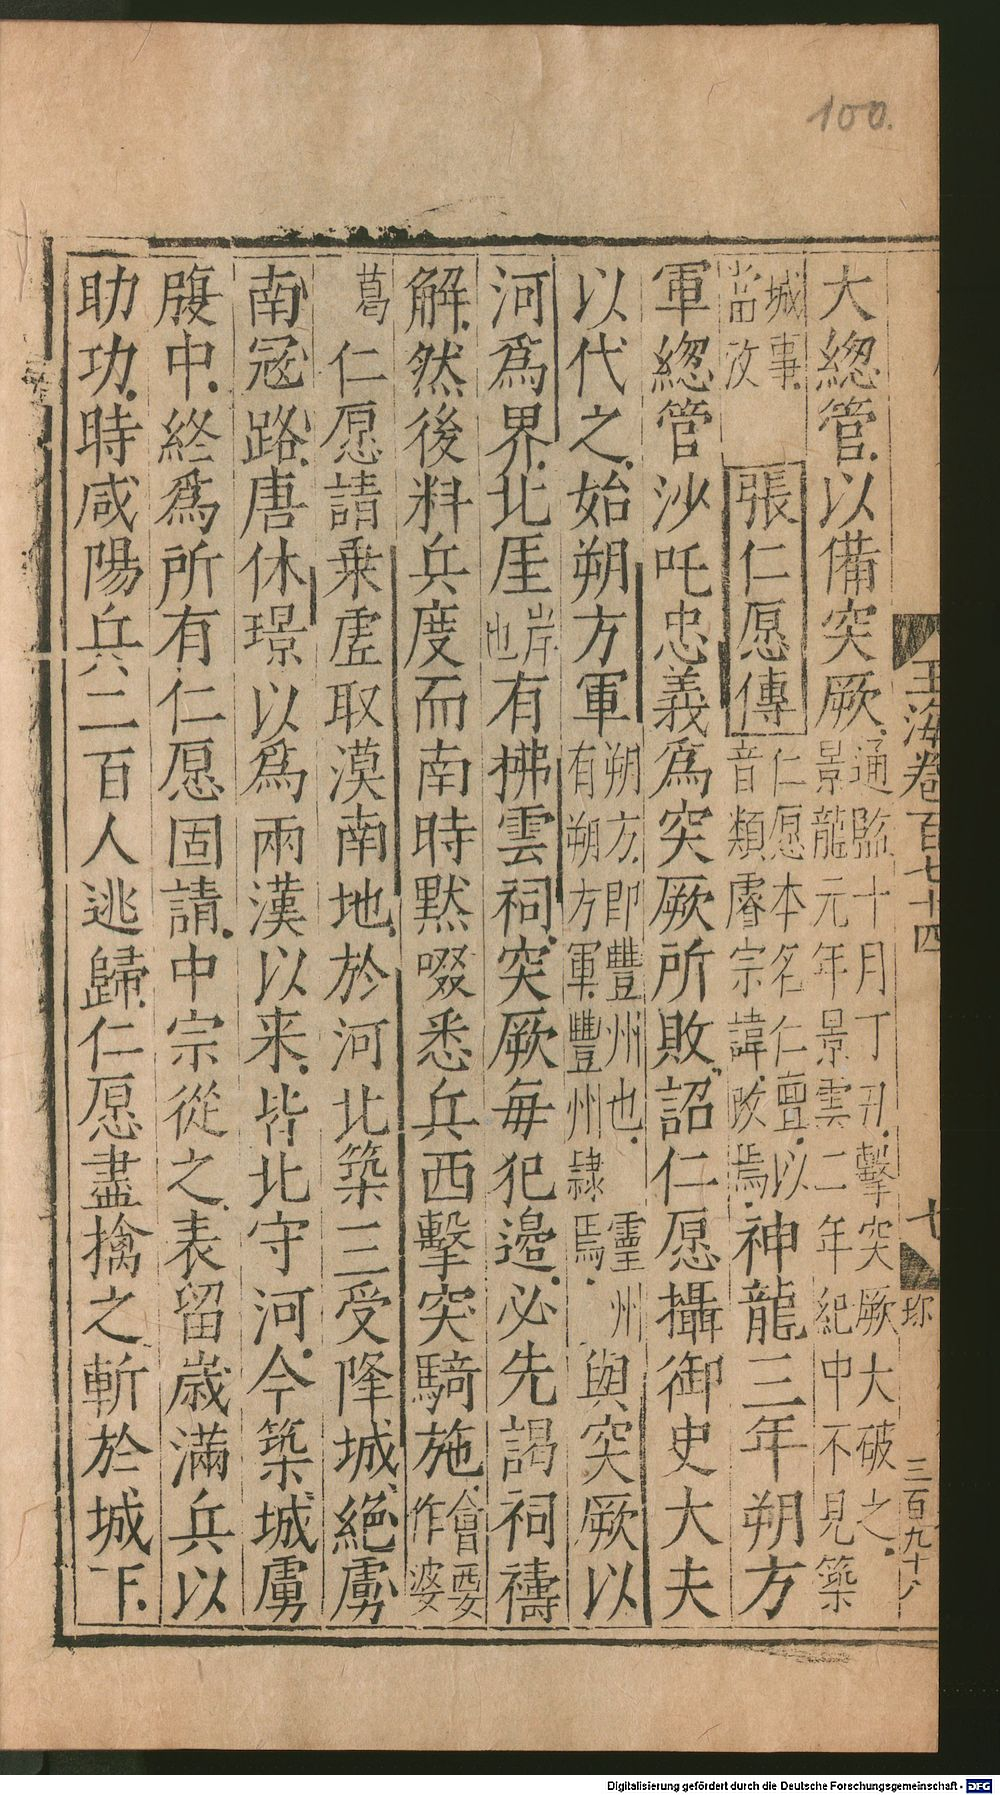 100.
玉海卷百七十四
七
珎
三百九十八
大緫管以備突厥通鑑十月丁丑擊突厥大破之景龍元年景雲二年紀中不見築
城事當攷 張仁愿傳仁愿本名仁亶以音類睿宗諱改焉神龍三年朔方
軍緫管沙吒忠義爲突厥所敗詔仁愿攝御史大夫
以代之始朔方軍朔方即豐州也 靈州有朔方軍豐州隷焉與突厥以
河爲界北厓岸也有拂雲祠突厥毎犯邉必先謁祠禱
解然後料兵度而南時默啜悉兵西擊突騎施會要作婆
葛仁愿請乗虗取漠南地於河北築三受降城絶虜
南冦路唐休璟以爲兩漢以来皆北守河今築城虜
腹中終爲所有仁愿固請中宗從之表留歲滿兵以
助功時咸陽兵二百人逃歸仁愿盡擒之斬於城下
Digitalisierung gefördert durch die Deutsche Forschungsgemeinschaft - DFG